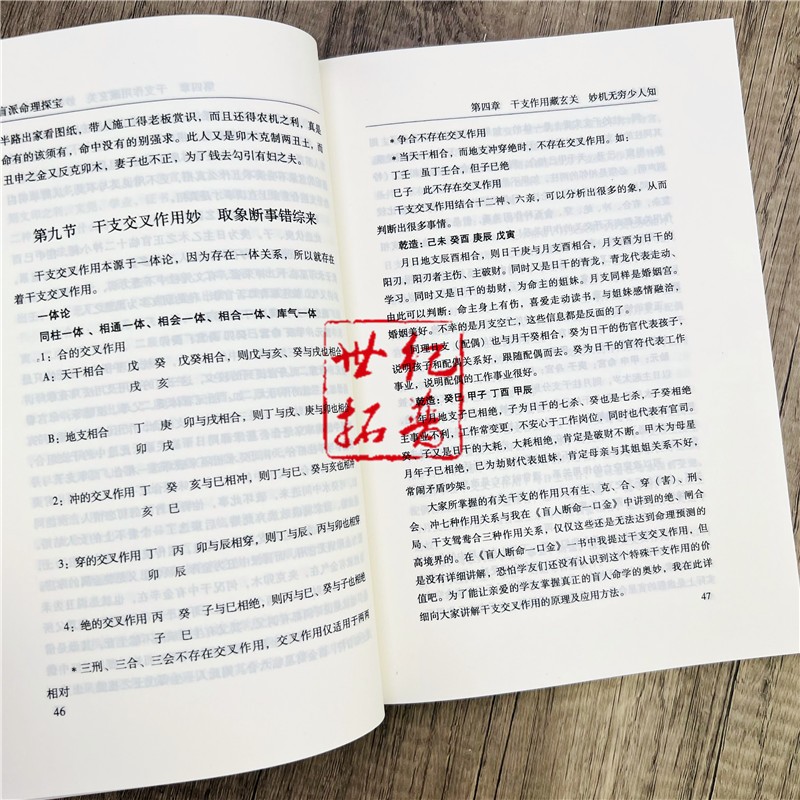 盲派命理探宝
半路出家看图纸，带人施工得老板赏识，而且还得农机之利，真是
命有的该须有，命中没有的别强求。此人又是卯木克制两丑土，而
丑申之金又反克卯木，妻子也不正，为了钱去勾引有妇之夫。
第九节 干支交叉作用妙 取象断事错综来
干支交叉作用本源于一体论，因为存在一体关系，所以就存在
着干支交叉作用。
一体论
同柱一体、相通一体、相会一体、相合一体、库气一体
1：合的交叉作用
A：天干相合 戊 癸 戊癸相合，则戊与亥、癸与戌也相合
戌 亥
B：地支相合 丁 庚 卯与戌相合，则丁与戌、庚与卯也相合
卯 戌
2：冲的交叉作用 丁 癸 亥与巳相冲，则丁与巳、癸与亥也相冲
亥 巳
3：穿的交叉作用 丁 丙 卯与辰相穿，则丁与辰、丙与卯也相穿
卯 辰
4：绝的交叉作用 丙 癸 子与巳相绝，则丙与巳、癸与子也相绝
子 巳
*三刑、三合、三会不存在交叉作用，交叉作用仅适用于两两
相对
46
第四章 干支作用藏玄关 妙机无穷少人知
*争合不存在交叉作用
*当天干相合，而地支冲穿绝时，不存在交叉作用。如：
丁壬 虽丁壬合，但子巳绝
巳子 此不存在交叉作用
干支交叉作用结合十二神、六亲，可以分析出很多的象，从而
判断出很多事情。
乾造：己未 癸酉 庚辰 戊寅
月日地支辰酉相合，则日干庚与月支酉相合，月支酉为日干的
阳刃，阳刃者主伤、主破财。同时又是日干的青龙，青龙代表走动、
学习。同时又是日干的劫财，为命主的姐妹。月支同样是婚姻宫。
由此可以判断：命主身上有伤，喜爱走动读书，与姐妹感情融洽，
婚姻美好。不幸的是月支空亡，这些信息都是反面的了。
同理日支（配偶）也与月干癸相合，癸为日干的伤官代表孩子，
说明孩子和配偶关系好，跟随配偶而去。癸为日干的官符代表工作
事业，说明配偶的工作事业很好。
乾造：癸巳 甲子 丁酉 甲辰
年月地支子巳相绝，子为日干的七杀、癸也是七杀，子癸相绝
主事业不利，工作常变更，不安心于工作岗位，同时也代表有官司。
癸、子又是日干的大耗，大耗相绝，肯定是破财不断。甲木为母星
月年子巳相绝，巳为劫财代表姐妹，肯定母亲与其姐姐关系不好，
常闹矛盾吵架。
大家所掌握的有关干支的作用只有生、克、合、穿（害）、刑、
会、冲七种作用关系与我在《盲人断命一口金》中讲到的绝、闸合
局、干支鸳鸯合三种作用关系，仅仅这些还是无法达到命理预测的
高境界的。在《盲人断命一口金》一书中我提过干支交叉作用，但
是没有详细讲解，恐怕学友们还没有认识到这个特殊干支作用的价
值吧。为了能让亲爱的学友掌握真正的盲人命学的奥妙，我在此详
细向大家讲解干支交叉作用的原理及应用方法。
47
世纪
拓普